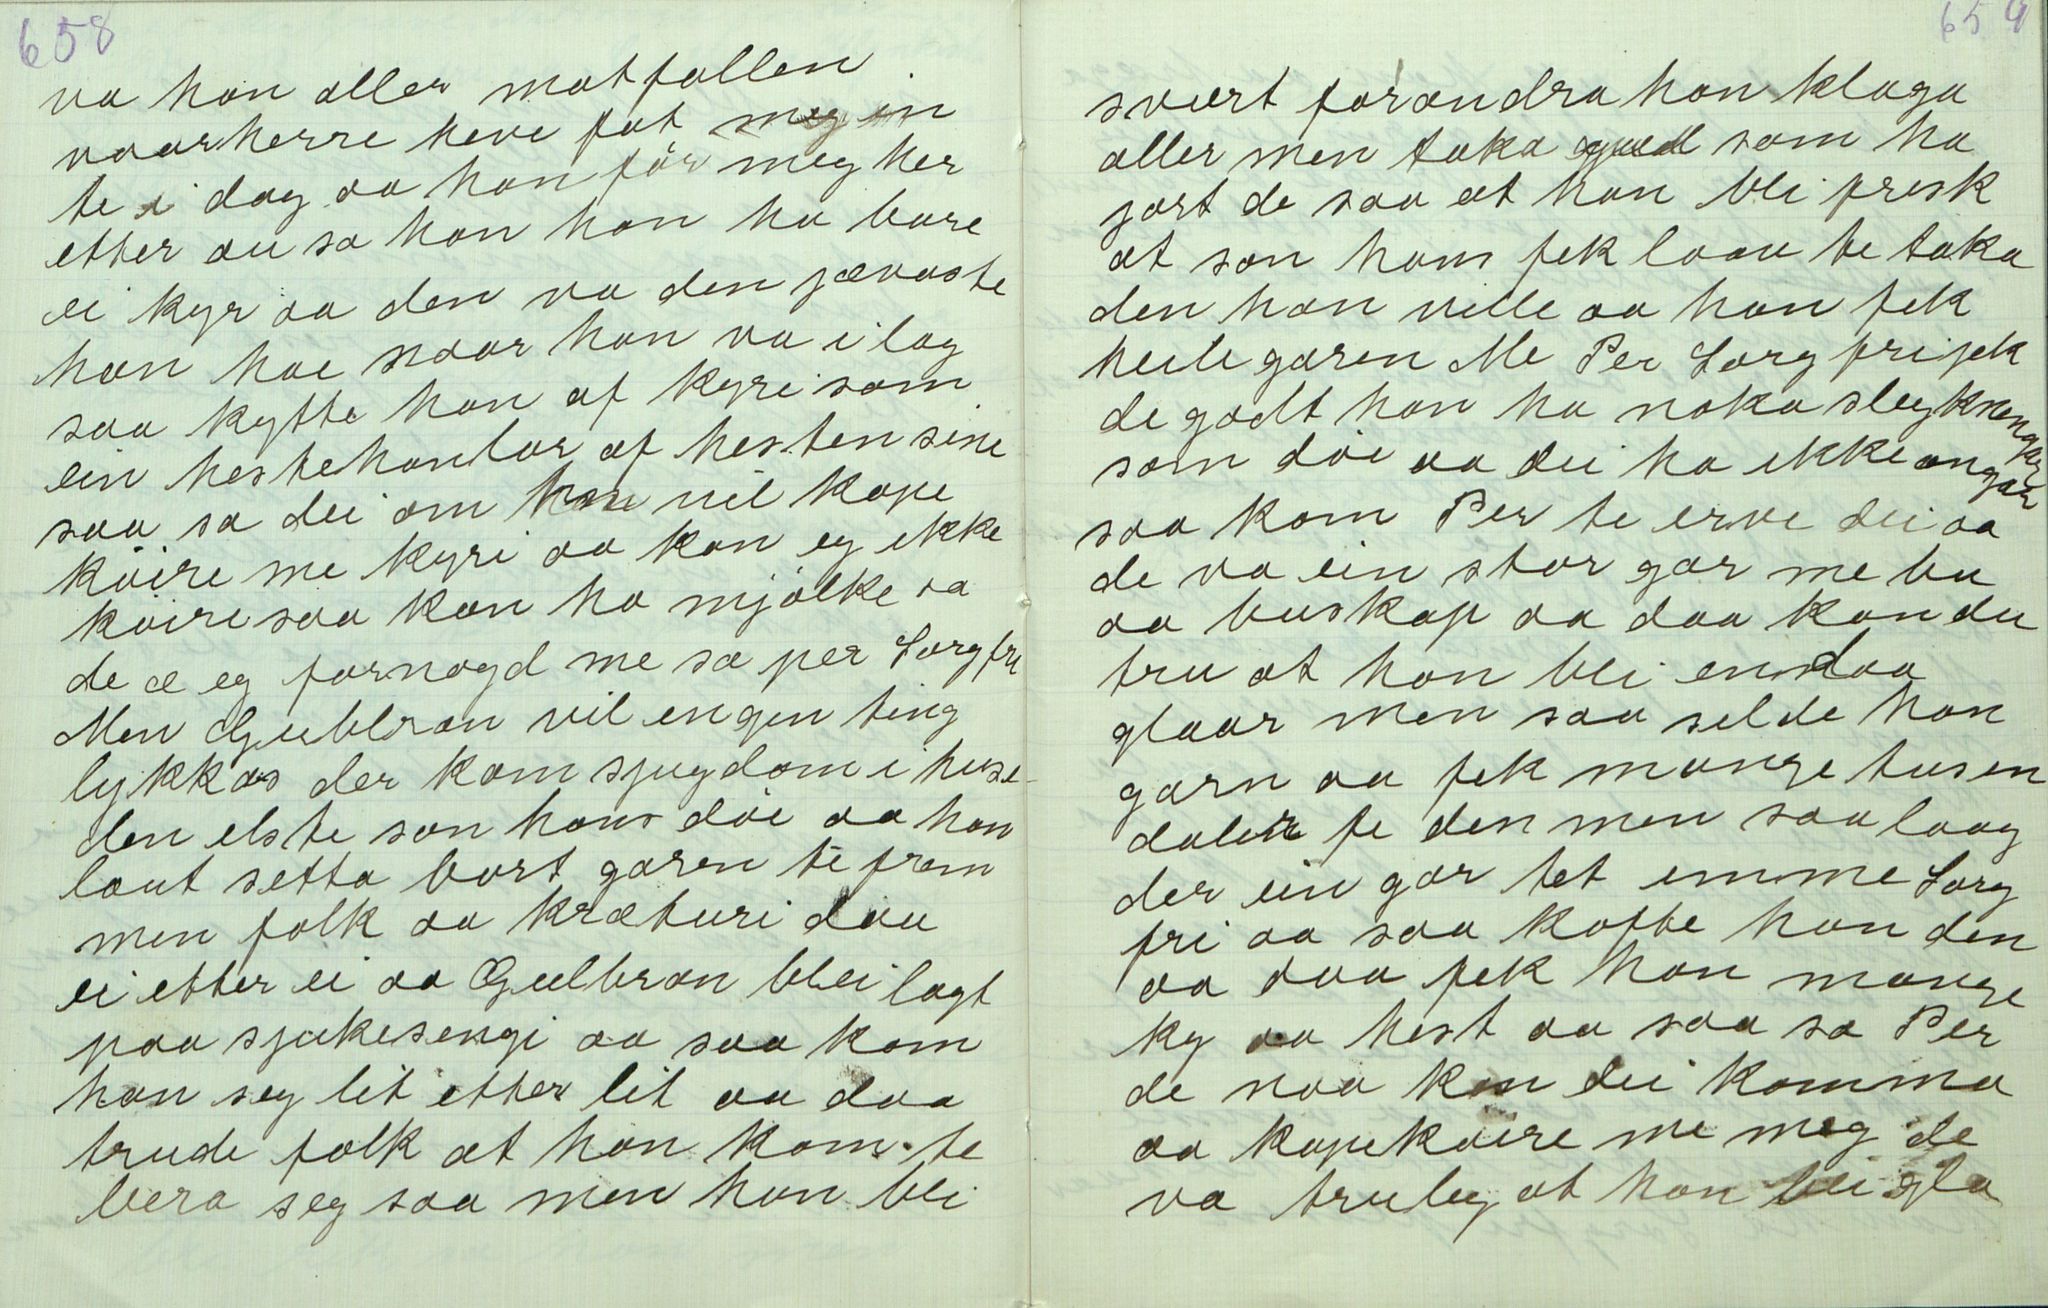 658
va han aller motfallen
vaarherre heve föt meg in
te i dag aa han för meg her
etter au sa han han ha bare
ei kyr aa den va den jævaste
han hae naar han va i lag
saa kytte han af kyri som
ein hestehanlar af hesten sine
saa sa dei om han vil kape
köire me kyri aa kan eg ikke
köire saa kan ho mjölke aa
de æ eg fornögd me sa per Sorgfri
Men Gulbran vil engen ting
lykkas der kom sjugdom i huse
den elste son hans döe aa han
laut setta bort garen te frem
men folk aa kræturi dau
ei etter ei aa Gulbran blei lagt
paa sjukesengi aa saa kom
han seg lit etter lit aa daa
trude folk at han kom te
bera seg saa men han bli
659
svært forandra han klaga
aller men taka gud som ha
jort de saa at han bli frisk
at son hans fek laau te taka
den han ville aa han fek
heile garen Me Per Sorgfri jek
de godt han ha noka sleyknengar
som döe aa dei ha ikke ongar
saa kom Per te erve dei aa
de va ein stor gar me bu
aa buskap aa daa kan du
tru at han bli endaa
glaar men saa selde han
garn aa fek mange tusen
daler fe den men saa laag
der ein gar tet imme Sorg
fri aa saa köfte han den
aa daa fek han mange
ky aa hest aa saa sa Per
de naa kan dei komma
aa kapeköire me meg de
va truleg at han blei gla